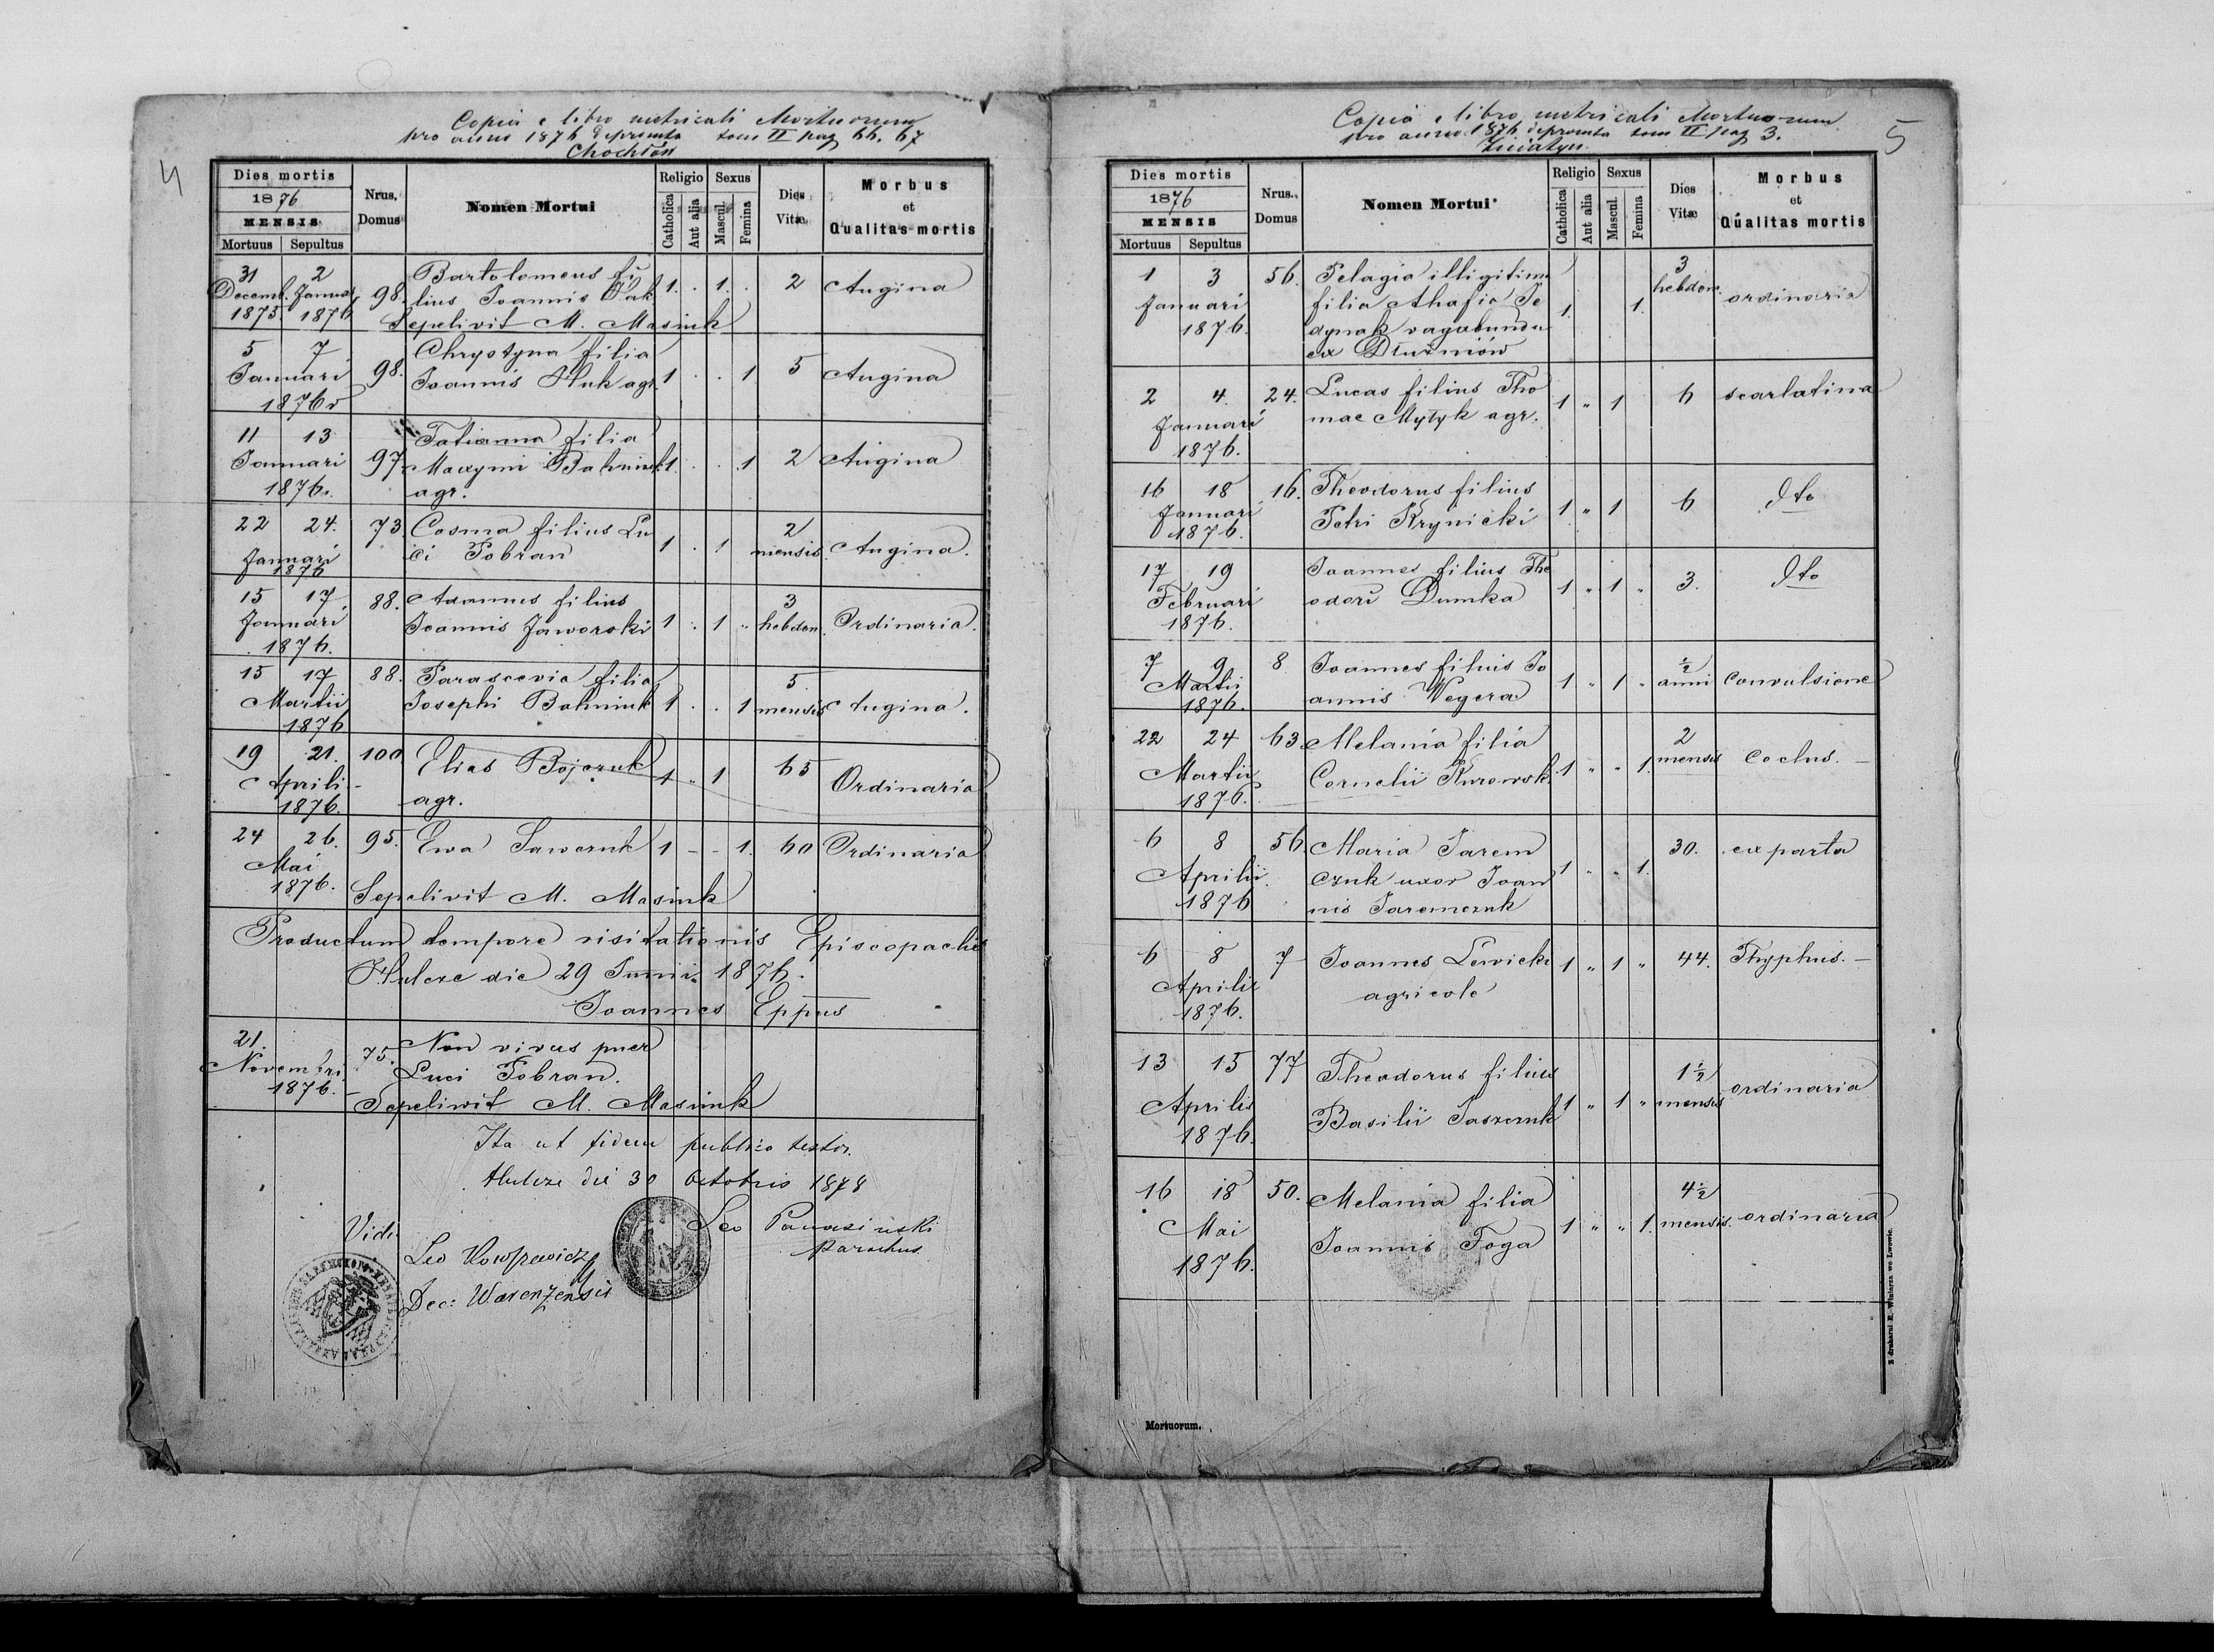 4
Copia e libro metricali Mortuorum
pro anno 1876 depromta tom II pag 66. 67
Chochłów
Dies mortis
1876
MENSIS
Mortuus Sepultus
Nrus. Domus
Nomen Mortui
Religio
Catholica
Aut alia
Sexus
Mascul.
Femina
Dies Vitæ
Morbus et Qualitas mortis
31 2 Bartolomeus fi
Decemb. Januar 98. lius Joannis Bak 1. . 1. . 2 Angina
1875 1876 Sepelivit M. Masiuk
5 7 Chrystyna filia
Januari 98. Joannis Huk agr. 1 . . 1 5 Angina
1876
11 13 Tatianna filia
Januari 97. Maxymi Bahniuk 1. . . 1 2 Angina
1876. agr.
22 24. 73 Cosma filius Lu 2
Januari ci Pobran 1 . 1 mensis. Angina.
1876
15 17 88. Adamus filius 3
Januari Joannis Jaworski 1 . 1 " hebdom. Ordinaria.
1876.
15 17 88. Parascevia filia 5
Martii Josephi Bahniuk 1 . . 1 mensis Angina.
1876
19 21. 100 Elias Bojczuk 1 " 1 65 Ordinaria
Aprili agr.
1876.
24 26. 95. Ewa Sawczuk 1 - - 1. 60 Ordinaria
Mai
1876. Sepelivit M. Masiuk
Productum tempore visitationis Episcopachis
Hulcze die 29 Junii 1876.
Joannes Eppus
21. 75. Non vivus puer
Novembri Luci Pobran.
1876. Sepeliwit M. Masiuk
Ita ut fidem publico testor.
Hulcze die 30 Octobris 1878
Leo
Parochus
Vidi
Leo
Dec: Warenzensis
5
Copia e libro metricali Mortuorum
pro anno 1876 depromta tom II pag 3.
Żniatyn
Dies mortis
1876
MENSIS
Mortuus Sepultus
Nrus. Domus
Nomen Mortui
Religio
Catholica
Aut alia
Sexus
Mascul.
Femina
Dies Vitæ
Morbus et Qualitas mortis
1 3 56. Pelagia illigitima 3
Januari filia Ahafia Fe hebdom. ordinaria
1876. dynak vagabunda 1. 1.
ex Dłużniów
2 4. 24. Lucas filius Tho 6 scarlatina
Januari mae Mytyk agr. 1 " 1
1876.
16 18 16. Theodorus filius
Januari Petri Krynicki 1 " 1 6 dto
1876.
17 19 Joannes filius The
Februari odori Dumka 1 " 1 " 3. dto
1876.
7 9 8 Joannes filius Jo ½
Martii annis Wegera 1 " 1 " anni convulsione
1876.
22 24 63. Melania filia 2
Martii Cornelii Kurowski 1 " " 1. mensis coclus.
1876.
6 8 56. Maria Jarem 30. ex parta
Aprilii czuk uxor Joan 1 " " 1.
1876 nis Jaremczuk
6 8 7 Joannes Lewicki 1 " 1 " 44. Thyphus.
Aprilis agricola
1876.
13 15 77 Theodorus filius 1½
Aprilis Basilii Saszczuk 1 " 1 " mensis ordinaria
1876.
16 18 50. Melania filia 4½
Mai Joannis Foga 1 " " 1. mensis. ordinaria
1876.
Mortuorum.
Z drukarni E. Winiarza we Lwowie.